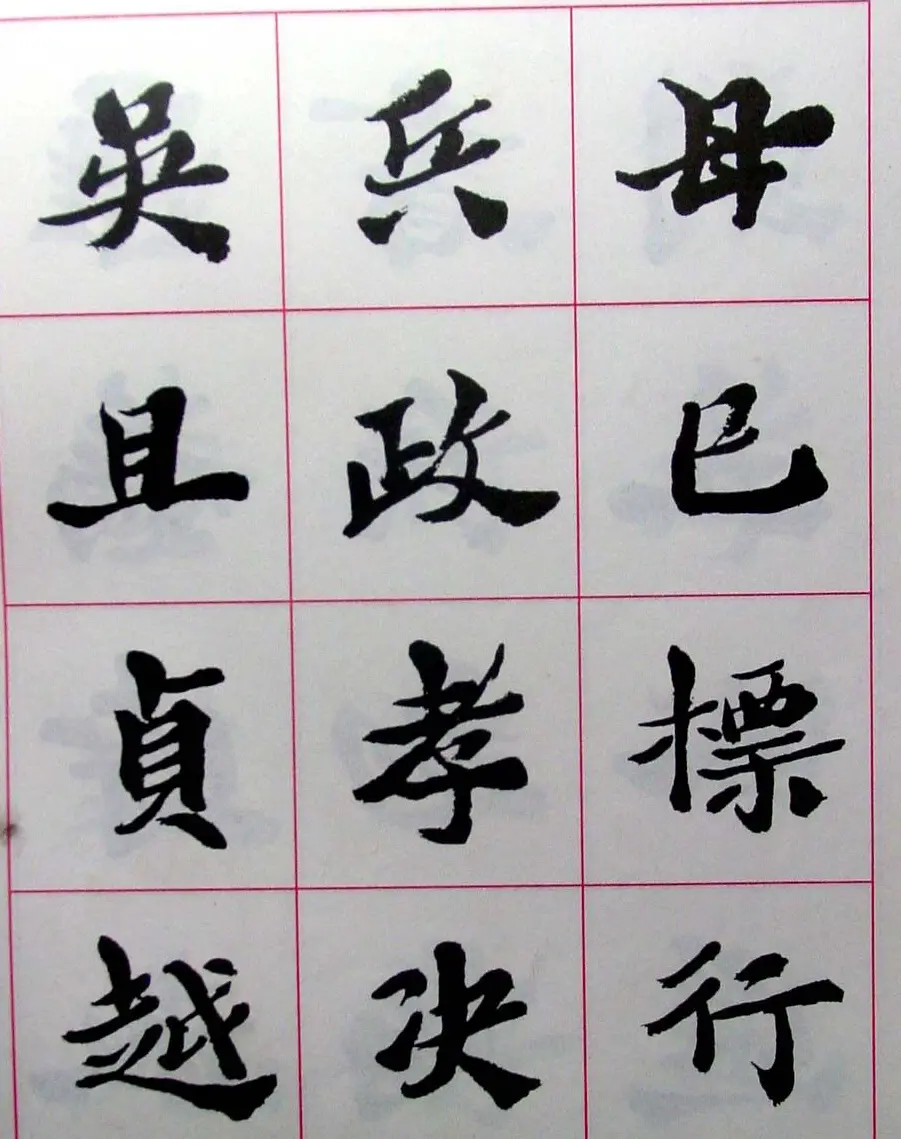 母已標行
兵政孝决
吳且貞越